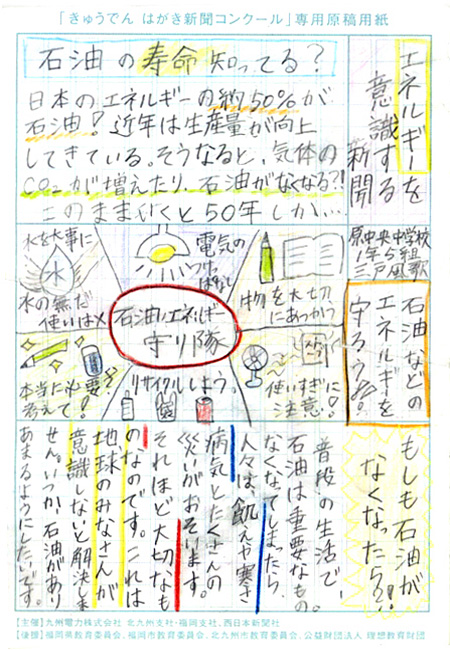 「きゅうでん はがき新聞コンクール」専用原稿用紙
エネルギーを
意識する
新聞
原中央中学校
1年5組
三戸風歌
石油の寿命知ってる?
日本のエネルギーの約50%が
石油!近年は生産量が向上
してきている。そうなると、気体の
CO2が増えたり、石油がなくなる?!
このままいくと50年しか…
石油などの
エネルギーを
守ろうよ。
水を大事に
水
水の無だ
使いは×
電気の
つけ
ぱなし
物を大切
にあつかう
石油、エネルギー
守り隊
本当に必要?
考えて!
リサイクルしよう。
使いすぎに
注意!
もしも石油が
なくなったら?!
普段の生活で、
石油は重要なもの。
なくなってしまったら、
人々は、飢えや寒さ
病気とたくさんの
災いがおそいます。
それほど大切なも
のなのです。これは
地球のみなさんが
意識しないと解決しま
せん。いつか、石油があり
あまるようにしたいです。
【主催】九州電力株式会社 北九州支社・福岡支社、西日本新聞社
【後援】福岡県教育委員会、福岡市教育委員会、北九州市教育委員会、公益財団法人 理想教育財団